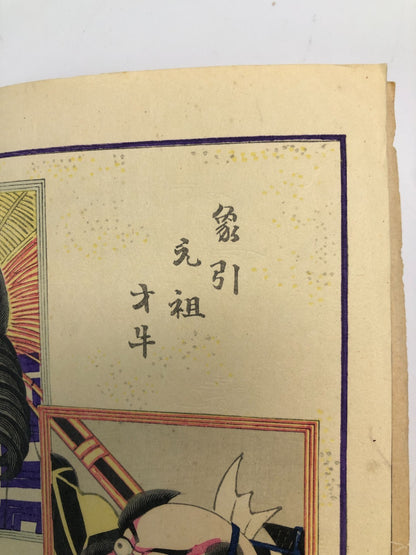 象引
元祖
才牛